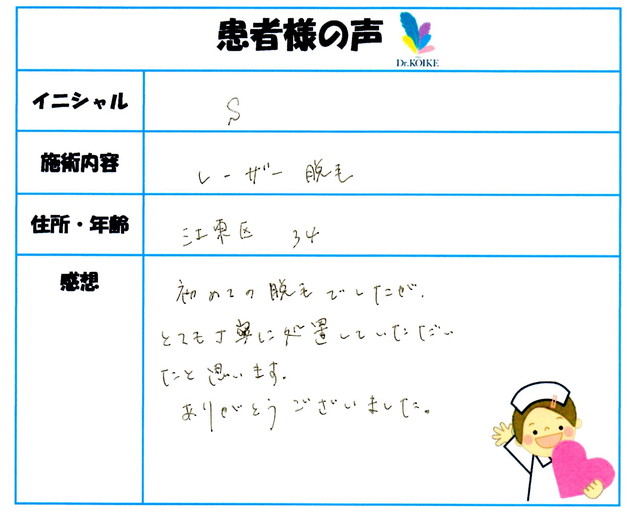 患者様の声
Dr.KOIKE
イニシャル
S
施術内容
レーザー脱毛
住所・年齢
江東区 34
感想
初めての脱毛でしたが、
とても丁寧に処置していただい
たと思います。
ありがとうございました。